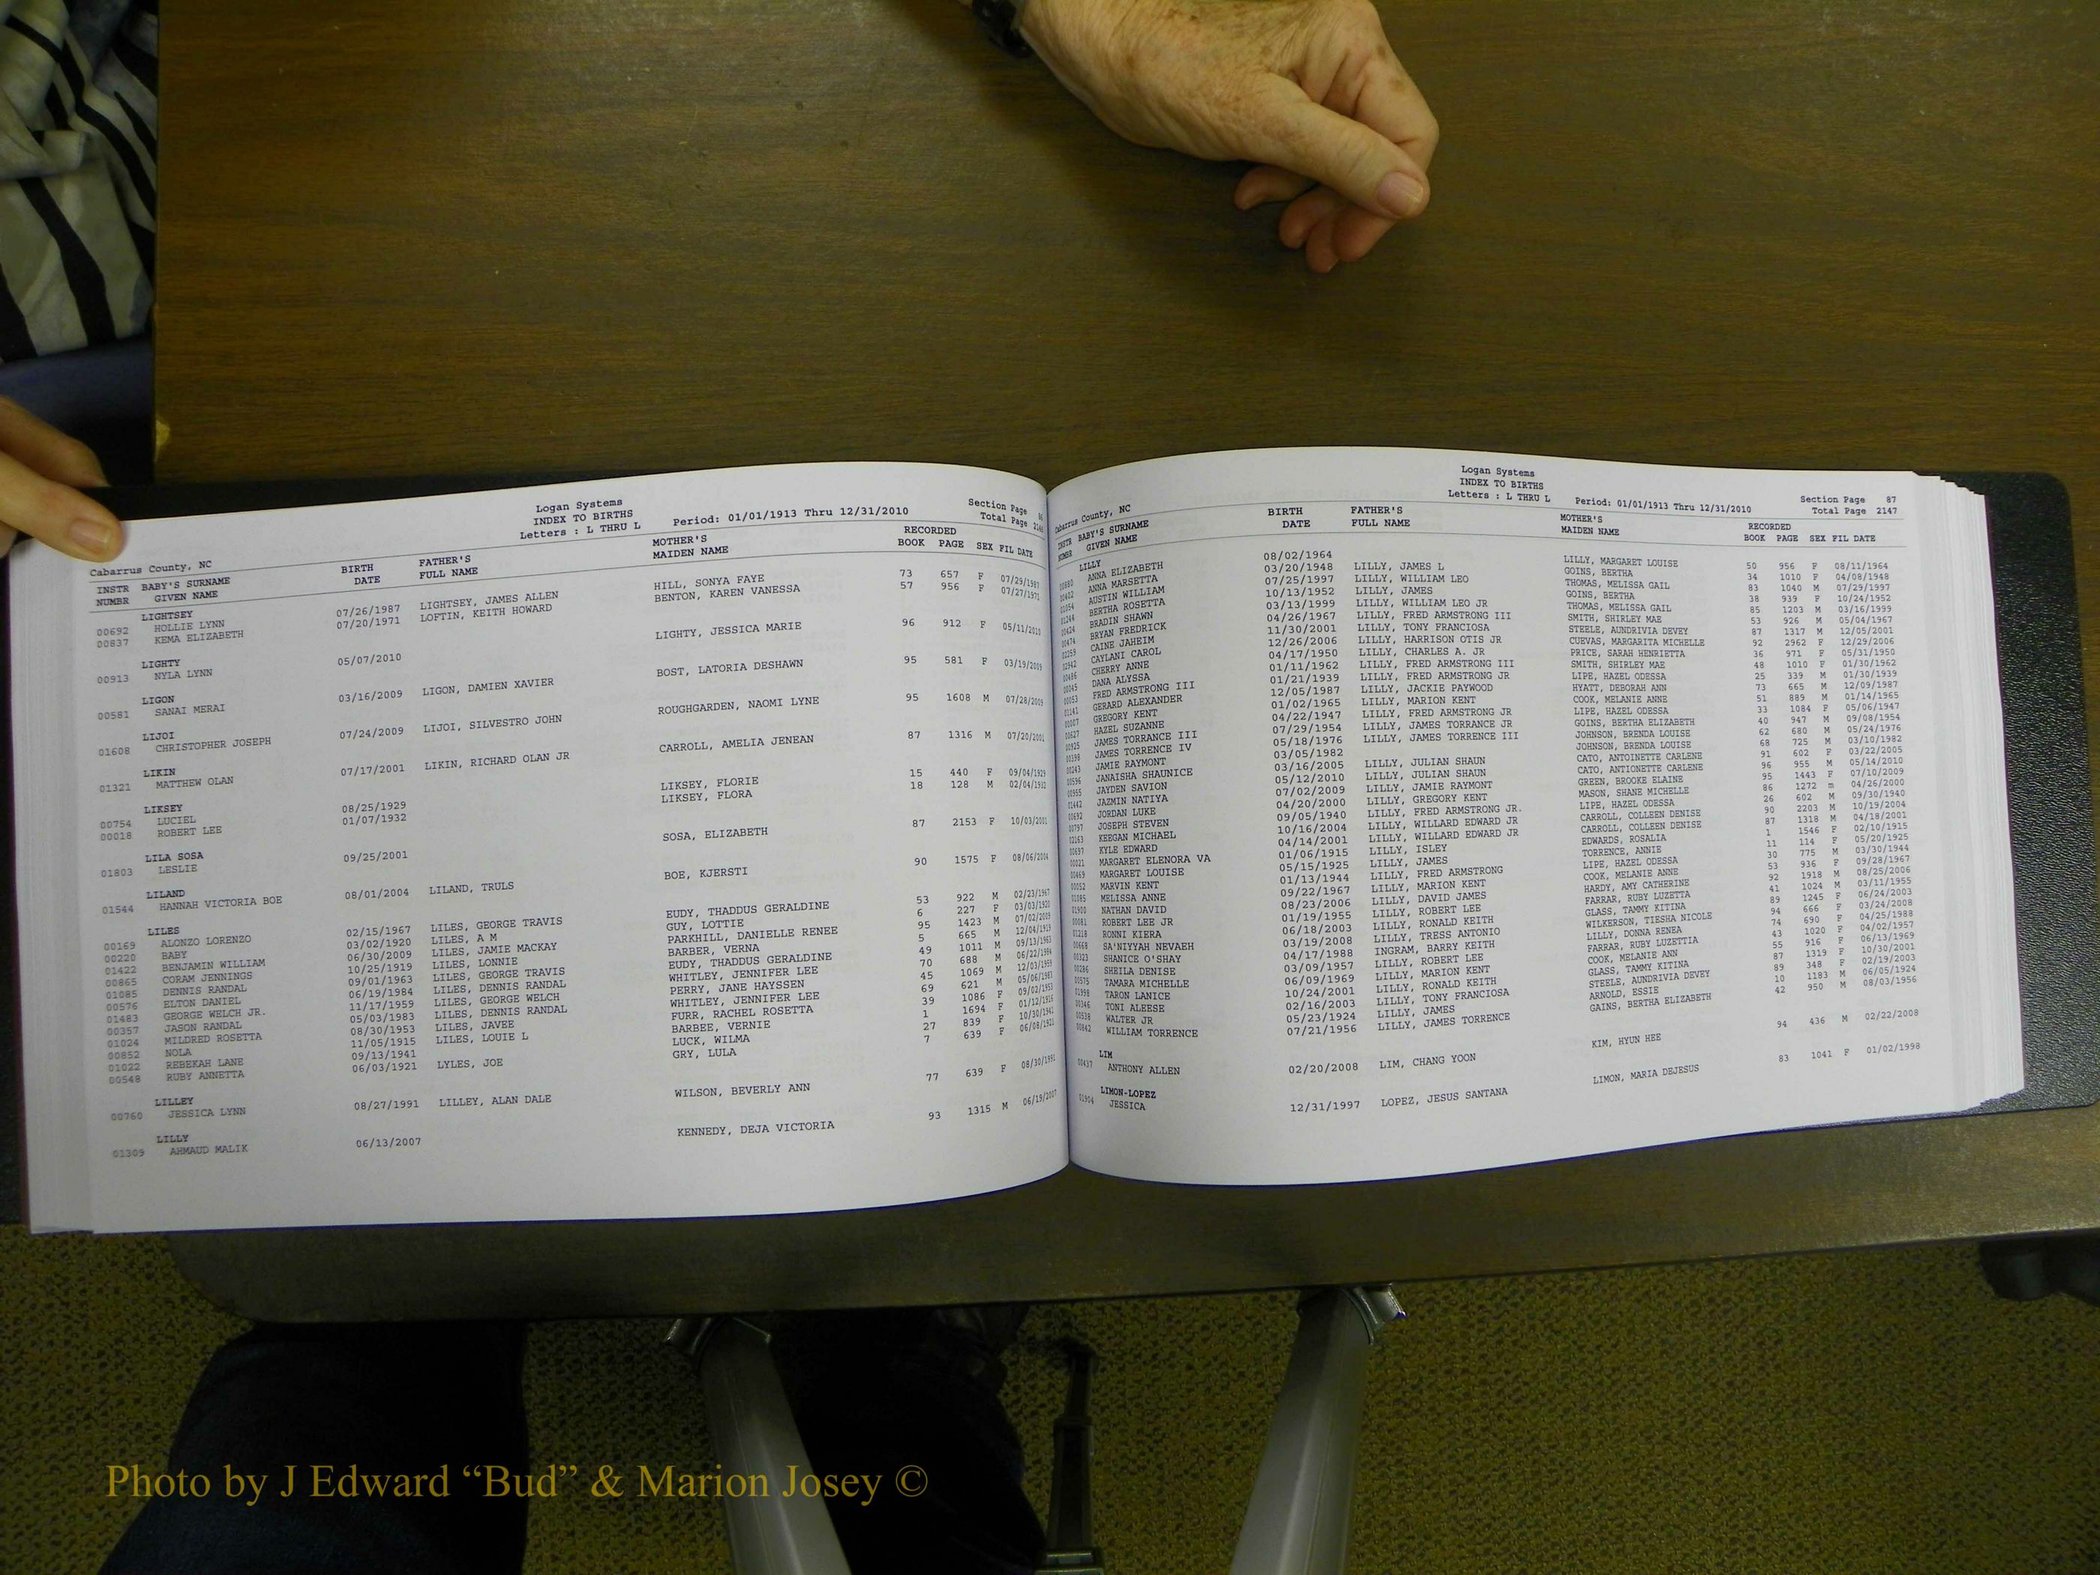 Logan Systems
INDEX TO BIRTHS
Letters : L THRU L
Period: 01/01/1913 Thru 12/31/2010
Section Page
Total Page
Cabarrus County, NC
INSTR BABY'S SURNAME BIRTH FATHER'S MOTHER'S RECORDED
NUMBR GIVEN NAME DATE FULL NAME MAIDEN NAME BOOK PAGE SEX FIL DATE
LIGHTSEY
00692 HOLLIE LYNN 07/26/1987 LIGHTSEY, JAMES ALLEN HILL, SONYA FAYE 73 657 F 07/29/1987
00837 KEMA ELIZABETH 07/20/1971 LOFTIN, KEITH HOWARD BENTON, KAREN VANESSA 57 956 F 07/27/1971
LIGHTY
00913 NYLA LYNN 05/07/2010 LIGHTY, JESSICA MARIE 96 912 F 05/11/2010
LIGON
00581 SANAI MERAI 03/16/2009 LIGON, DAMIEN XAVIER BOST, LATORIA DESHAWN 95 581 F 03/19/2009
LIJOI
01608 CHRISTOPHER JOSEPH 07/24/2009 LIJOI, SILVESTRO JOHN ROUGHGARDEN, NAOMI LYNE 95 1608 M 07/28/2009
LIKIN
01321 MATTHEW OLAN 07/17/2001 LIKIN, RICHARD OLAN JR CARROLL, AMELIA JENEAN 87 1316 M 07/20/2001
LIKSEY
00754 LUCIEL 08/25/1929 LIKSEY, FLORIE 15 440 F 09/04/1929
00018 ROBERT LEE 01/07/1932 LIKSEY, FLORA 18 128 M 02/04/1932
LILA SOSA
01803 LESLIE 09/25/2001 SOSA, ELIZABETH 87 2153 F 10/03/2001
LILAND
01544 HANNAH VICTORIA BOE 08/01/2004 LILAND, TRULS BOE, KJERSTI 90 1575 F 08/06/2004
LILES
00169 ALONZO LORENZO 02/15/1967 LILES, GEORGE TRAVIS EUDY, THADDUS GERALDINE 53 922 M 02/23/1967
00220 BABY 03/02/1920 LILES, A M GUY, LOTTIE 6 227 F 03/03/1920
01422 BENJAMIN WILLIAM 06/30/2009 LILES, JAMIE MACKAY PARKHILL, DANIELLE RENEE 95 1423 M 07/02/2009
00865 CORAM JENNINGS 10/25/1919 LILES, LONNIE BARBER, VERNA 5 665 M 12/04/1919
01085 DENNIS RANDAL 09/01/1963 LILES, GEORGE TRAVIS EUDY, THADDUS GERALDINE 49 1011 M 09/13/1963
00576 ELTON DANIEL 06/19/1984 LILES, DENNIS RANDAL WHITLEY, JENNIFER LEE 70 688 M 06/22/1984
01483 GEORGE WELCH JR. 11/17/1959 LILES, GEORGE WELCH PERRY, JANE HAYSSEN 45 1069 M 12/03/1959
00357 JASON RANDAL 05/03/1983 LILES, DENNIS RANDAL WHITLEY, JENNIFER LEE 69 621 M 05/06/1983
01024 MILDRED ROSETTA 08/30/1953 LILES, JAVEE FURR, RACHEL ROSETTA 39 1086 F 09/02/1953
00852 NOLA 11/05/1915 LILES, LOUIE L BARBEE, VERNIE 1 1694 F 01/12/1916
01022 REBEKAH LANE 09/13/1941 LUCK, WILMA 27 839 F 10/30/1941
00548 RUBY ANNETTA 06/03/1921 LYLES, JOE GRY, LULA 7 639 F 06/08/1921
LILLEY
00760 JESSICA LYNN 08/27/1991 LILLEY, ALAN DALE WILSON, BEVERLY ANN 77 639 F 08/30/1991
LILLY
01309 AHMAUD MALIK 06/13/2007 KENNEDY, DEJA VICTORIA 93 1315 M 06/19/2007
Logan Systems
INDEX TO BIRTHS
Letters : L THRU L
Period: 01/01/1913 Thru 12/31/2010
Section Page 87
Total Page 2147
Cabarrus County, NC
INSTR BABY'S SURNAME BIRTH FATHER'S MOTHER'S RECORDED
NUMBR GIVEN NAME DATE FULL NAME MAIDEN NAME BOOK PAGE SEX FIL DATE
LILLY
00880 ANNA ELIZABETH 08/02/1964 LILLY, MARGARET LOUISE 50 956 F 08/11/1964
00402 ANNA MARSETTA 03/20/1948 LILLY, JAMES L GOINS, BERTHA 34 1010 F 04/08/1948
01054 AUSTIN WILLIAM 07/25/1997 LILLY, WILLIAM LEO THOMAS, MELISSA GAIL 83 1040 M 07/29/1997
01244 BERTHA ROSETTA 10/13/1952 LILLY, JAMES GOINS, BERTHA 38 939 F 10/24/1952
00424 BRADIN SHAWN 03/13/1999 LILLY, WILLIAM LEO JR THOMAS, MELISSA GAIL 85 1203 M 03/16/1999
00474 BRYAN FREDRICK 04/26/1967 LILLY, FRED ARMSTRONG III SMITH, SHIRLEY MAE 53 926 M 05/04/1967
CAINE JAHEIM 11/30/2001 LILLY, TONY FRANCIOSA STEELE, AUNDRIVIA DEVEY 87 1317 M 12/05/2001
02942 CAYLANI CAROL 12/26/2006 LILLY, HARRISON OTIS JR CUEVAS, MARGARITA MICHELLE 92 2962 F 12/29/2006
00486 CHERRY ANNE 04/17/1950 LILLY, CHARLES A. JR PRICE, SARAH HENRIETTA 36 971 F 05/31/1950
00045 DANA ALYSSA 01/11/1962 LILLY, FRED ARMSTRONG III SMITH, SHIRLEY MAE 48 1010 F 01/30/1962
00053 FRED ARMSTRONG III 01/21/1939 LILLY, FRED ARMSTRONG JR LIPE, HAZEL ODESSA 25 339 M 01/30/1939
01141 GERARD ALEXANDER 12/05/1987 LILLY, JACKIE PAYWOOD HYATT, DEBORAH ANN 73 665 M 12/09/1987
00007 GREGORY KENT 01/02/1965 LILLY, MARION KENT COOK, MELANIE ANNE 51 889 M 01/14/1965
00627 HAZEL SUZANNE 04/22/1947 LILLY, FRED ARMSTRONG JR LIPE, HAZEL ODESSA 33 1084 F 05/06/1947
00925 JAMES TORRANCE III 07/29/1954 LILLY, JAMES TORRANCE JR GOINS, BERTHA ELIZABETH 40 947 M 09/08/1954
00398 JAMES TORRENCE IV 05/18/1976 LILLY, JAMES TORRENCE III JOHNSON, BRENDA LOUISE 62 680 M 05/24/1976
00243 JAMIE RAYMONT 03/05/1982 JOHNSON, BRENDA LOUISE 68 725 M 03/10/1982
00596 JANAISHA SHAUNICE 03/16/2005 LILLY, JULIAN SHAUN CATO, ANTOINETTE CARLENE 91 602 F 03/22/2005
00955 JAYDEN SAVION 05/12/2010 LILLY, JULIAN SHAUN CATO, ANTIONETTE CARLENE 96 955 M 05/14/2010
01442 JAZMIN NATIYA 07/02/2009 LILLY, JAMIE RAYMONT GREEN, BROOKE ELAINE 95 1443 F 07/10/2009
00692 JORDAN LUKE 04/20/2000 LILLY, GREGORY KENT MASON, SHANE MICHELLE 86 1272 m 04/26/2000
00797 JOSEPH STEVEN 09/05/1940 LILLY, FRED ARMSTRONG JR. LIPE, HAZEL ODESSA 26 602 M 09/30/1940
02163 KEEGAN MICHAEL 10/16/2004 LILLY, WILLARD EDWARD JR CARROLL, COLLEEN DENISE 90 2203 M 10/19/2004
00697 KYLE EDWARD 04/14/2001 LILLY, WILLARD EDWARD JR CARROLL, COLLEEN DENISE 87 1318 M 04/18/2001
00021 MARGARET ELENORA VA 01/06/1915 LILLY, ISLEY EDWARDS, ROSALIA 1 1546 F 02/10/1915
00469 MARGARET LOUISE 05/15/1925 LILLY, JAMES TORRENCE, ANNIE 11 114 F 05/20/1925
00052 MARVIN KENT 01/13/1944 LILLY, FRED ARMSTRONG LIPE, HAZEL ODESSA 30 775 M 03/30/1944
01085 MELISSA ANNE 09/22/1967 LILLY, MARION KENT COOK, MELANIE ANNE 53 936 F 09/28/1967
01900 NATHAN DAVID 08/23/2006 LILLY, DAVID JAMES HARDY, AMY CATHERINE 92 1918 M 08/25/2006
00081 ROBERT LEE JR 01/19/1955 LILLY, ROBERT LEE FARRAR, RUBY LUZETTA 41 1024 M 03/11/1955
01218 RONNI KIERA 06/18/2003 LILLY, RONALD KEITH GLASS, TAMMY KITINA 89 1245 F 06/24/2003
00668 SA'NIYYAH NEVAEH 03/19/2008 LILLY, TRESS ANTONIO WILKERSON, TIESHA NICOLE 94 666 F 03/24/2008
00323 SHANICE O'SHAY 04/17/1988 INGRAM, BARRY KEITH LILLY, DONNA RENEA 74 690 F 04/25/1988
00286 SHEILA DENISE 03/09/1957 LILLY, ROBERT LEE FARRAR, RUBY LUZETTIA 43 1020 F 04/02/1957
00575 TAMARA MICHELLE 06/09/1969 LILLY, MARION KENT COOK, MELANIE ANN 55 916 F 06/13/1969
01998 TARON LANICE 10/24/2001 LILLY, RONALD KEITH GLASS, TAMMY KITINA 87 1319 F 10/30/2001
00346 TONI ALEESE 02/16/2003 LILLY, TONY FRANCIOSA STEELE, AUNDRIVIA DEVEY 89 348 F 02/19/2003
00538 WALTER JR 05/23/1924 LILLY, JAMES ARNOLD, ESSIE 10 1183 M 06/05/1924
00842 WILLIAM TORRENCE 07/21/1956 LILLY, JAMES TORRENCE GAINS, BERTHA ELIZABETH 42 950 M 08/03/1956
LIM
00437 ANTHONY ALLEN 02/20/2008 LIM, CHANG YOON KIM, HYUN HEE 94 436 M 02/22/2008
LIMON-LOPEZ
01904 JESSICA 12/31/1997 LOPEZ, JESUS SANTANA LIMON, MARIA DEJESUS 83 1041 F 01/02/1998
Photo by J Edward “Bud” & Marion Josey ©